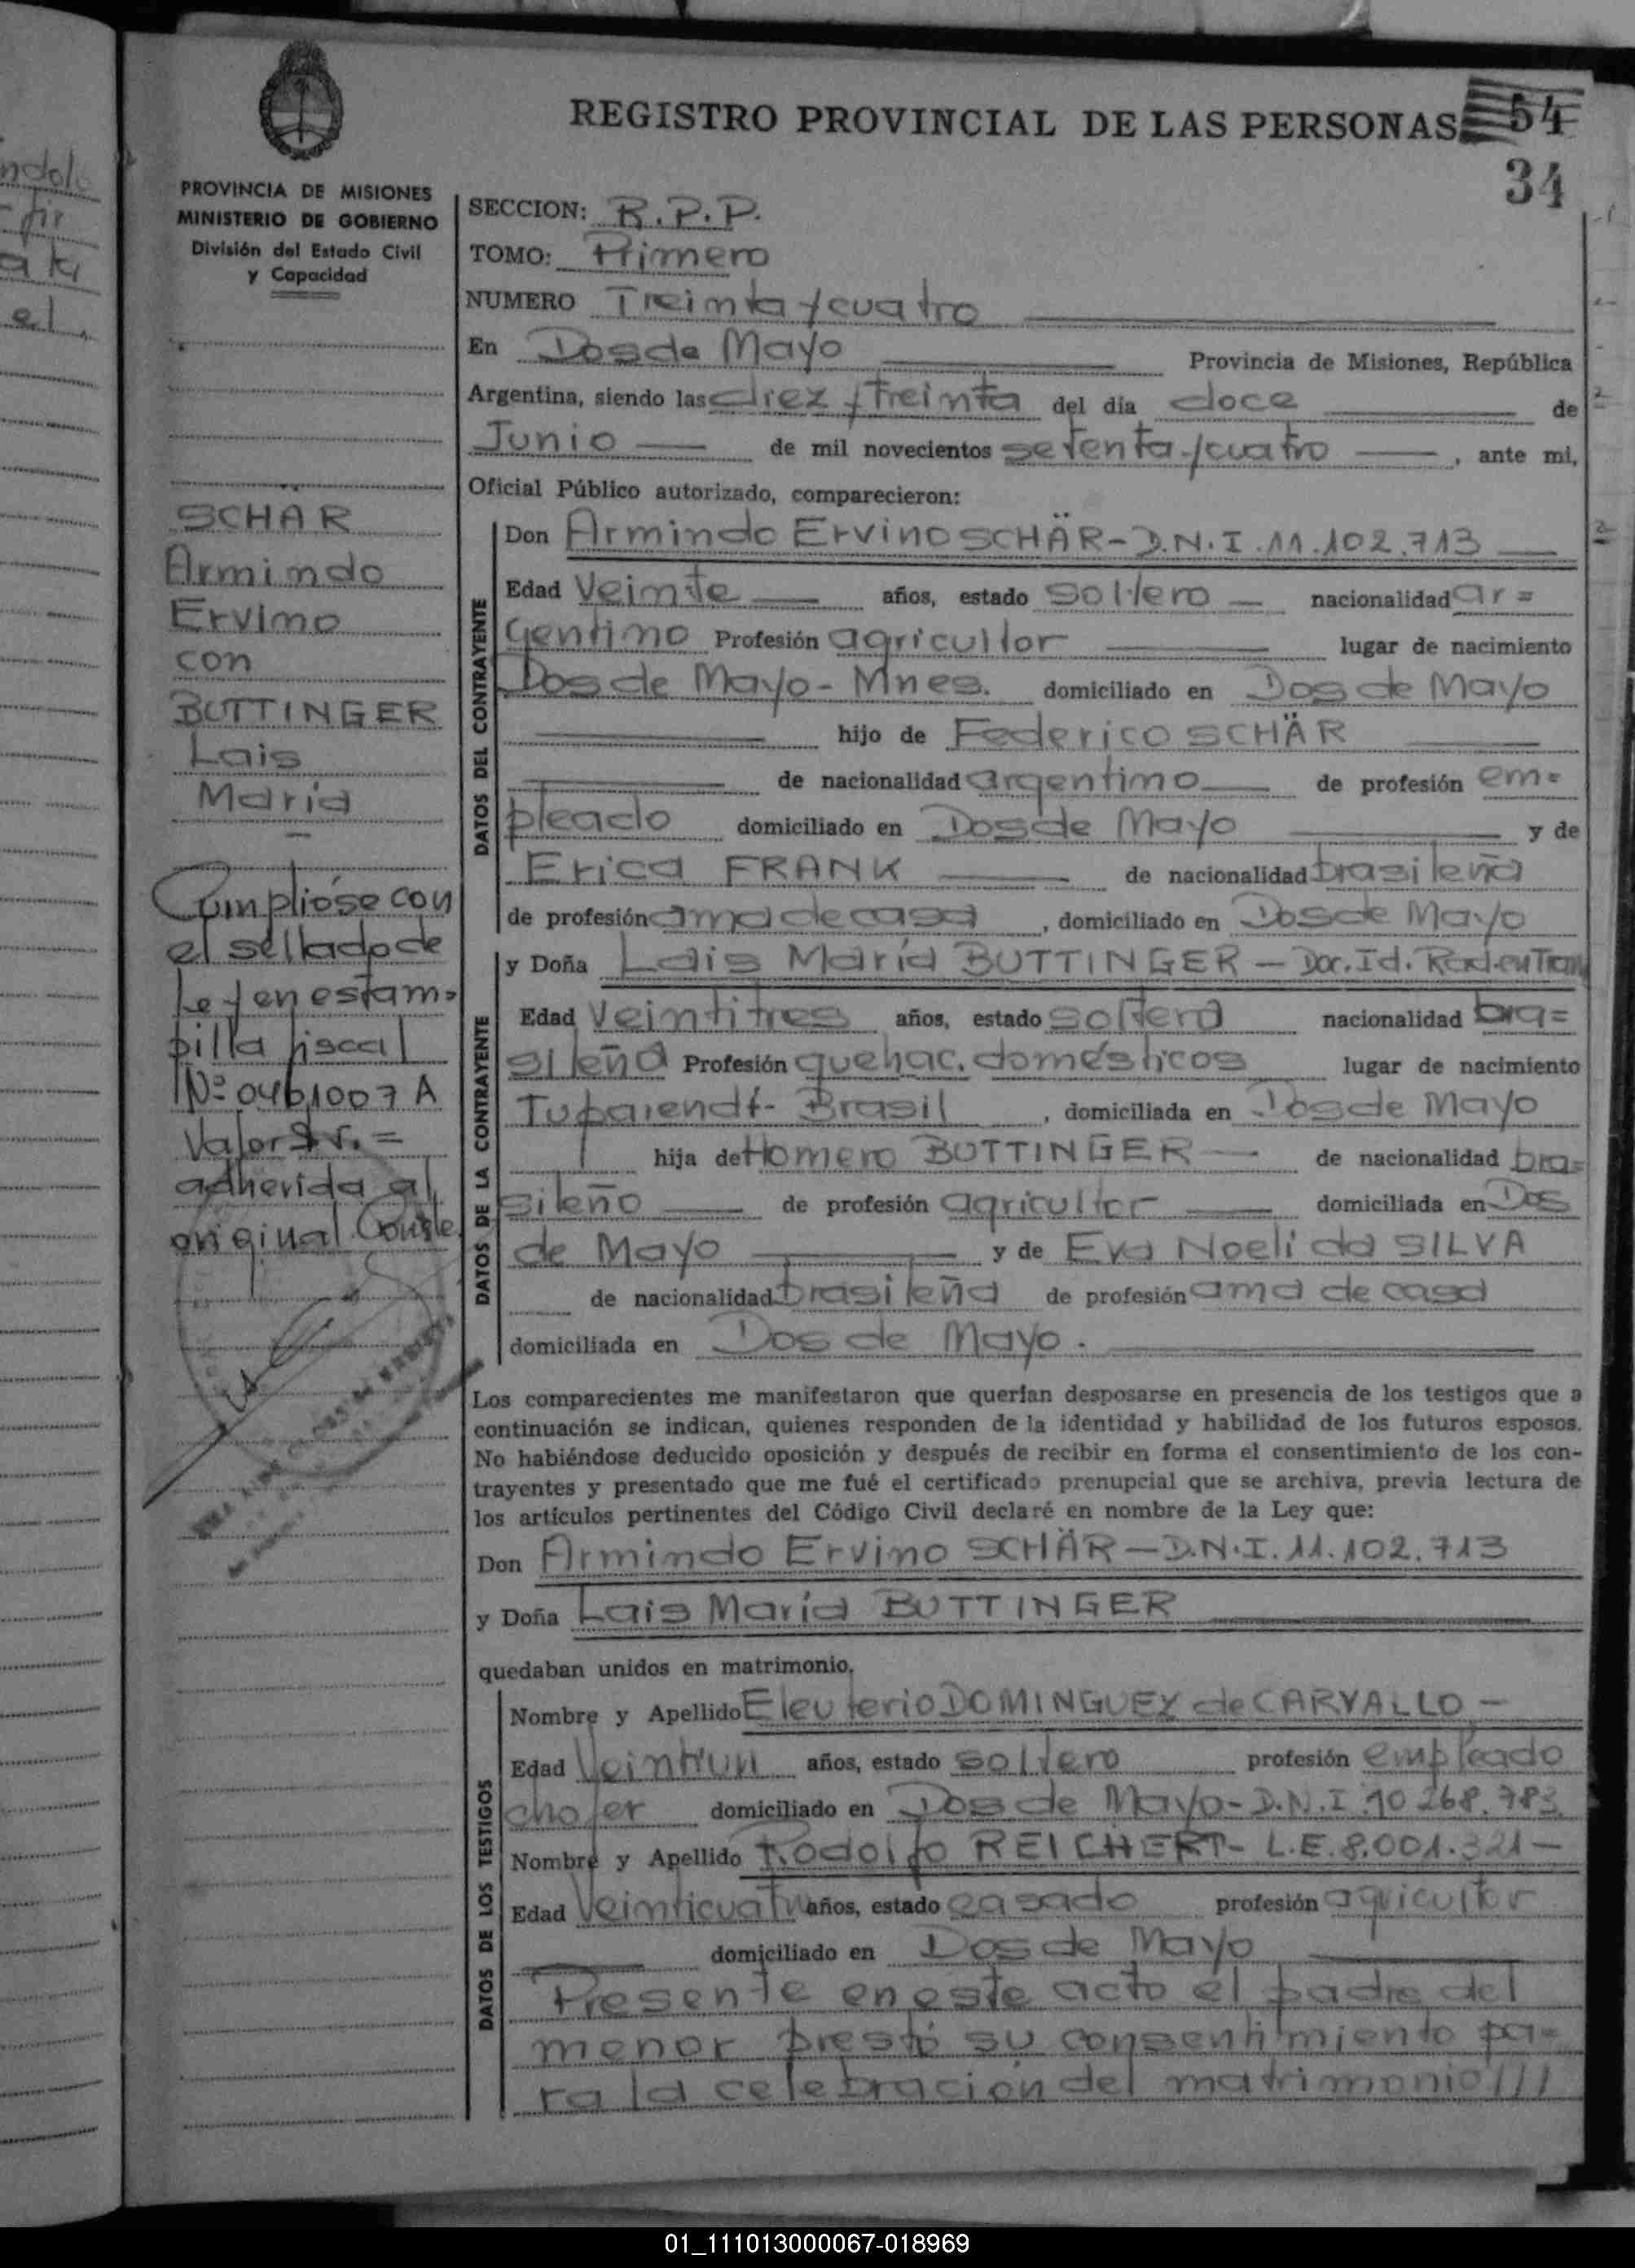 REGISTRO PROVINCIAL DE LAS PERSONAS 54
34
PROVINCIA DE MISIONES
MINISTERIO DE GOBIERNO
División del Estado Civil
y Capacidad
SCHAR
Armindo
Ervino
con
BUTTINGER
Lais
María
Cumplióse con
el sellado de
Ley en estam=
pilla fiscal
Nº 0461007 A
Valor
adherida al
original. Conste.
SECCION: R.P.P.
TOMO: Primero
NUMERO Treinta y cuatro
En Dos de Mayo Provincia de Misiones, República
Argentina, siendo las diez y treinta del día doce de
Junio de mil novecientos setenta y cuatro, ante mi,
Oficial Público autorizado, comparecieron:
DATOS DEL CONTRAYENTE
Don Armindo Ervino SCHÄR - D.N.I. 11.102.713
Edad Veinte años, estado soltero nacionalidad ar=
gentino Profesión agricultor lugar de nacimiento
Dos de Mayo - Mnes. domiciliado en Dos de Mayo
hijo de Federico SCHÄR
de nacionalidad argentino de profesión em=
pleado domiciliado en Dos de Mayo y de
Erica FRANK de nacionalidad brasileña
de profesión ama de casa, domiciliado en Dos de Mayo
DATOS DE LA CONTRAYENTE
y Doña Lais María BUTTINGER - Doc. Id. Rad. en Tram
Edad Veintitres años, estado soltera nacionalidad bra=
sileña Profesión quehac. domésticos lugar de nacimiento
Tuparendí - Brasil, domiciliada en Dos de Mayo
hija de Homero BUTTINGER de nacionalidad bra=
sileño de profesión agricultor domiciliada en Dos
de Mayo y de Eva Noeli da SILVA
de nacionalidad brasileña de profesión ama de casa
domiciliada en Dos de Mayo.
Los comparecientes me manifestaron que querían desposarse en presencia de los testigos que a
continuación se indican, quienes responden de la identidad y habilidad de los futuros esposos.
No habiéndose deducido oposición y después de recibir en forma el consentimiento de los con-
trayentes y presentado que me fué el certificado prenupcial que se archiva, previa lectura de
los artículos pertinentes del Código Civil declaré en nombre de la Ley que:
Don Armindo Ervino SCHÄR - D.N.I. 11.102.713
y Doña Lais María BUTTINGER
quedaban unidos en matrimonio.
DATOS DE LOS TESTIGOS
Nombre y Apellido Eleuterio DOMINGUEZ de CARVALLO -
Edad Veintiun años, estado soltero profesión empleado
chofer domiciliado en Dos de Mayo - D.N.I. 10.268.783
Nombre y Apellido Rodolfo REICHERT - L.E. 8.001.321 -
Edad Veinticuatro años, estado casado profesión agricultor
domiciliado en Dos de Mayo
Presente en este acto el padre del
menor prestó su consentimiento pa=
ra la celebración del matrimonio///
01_111013000067-018969